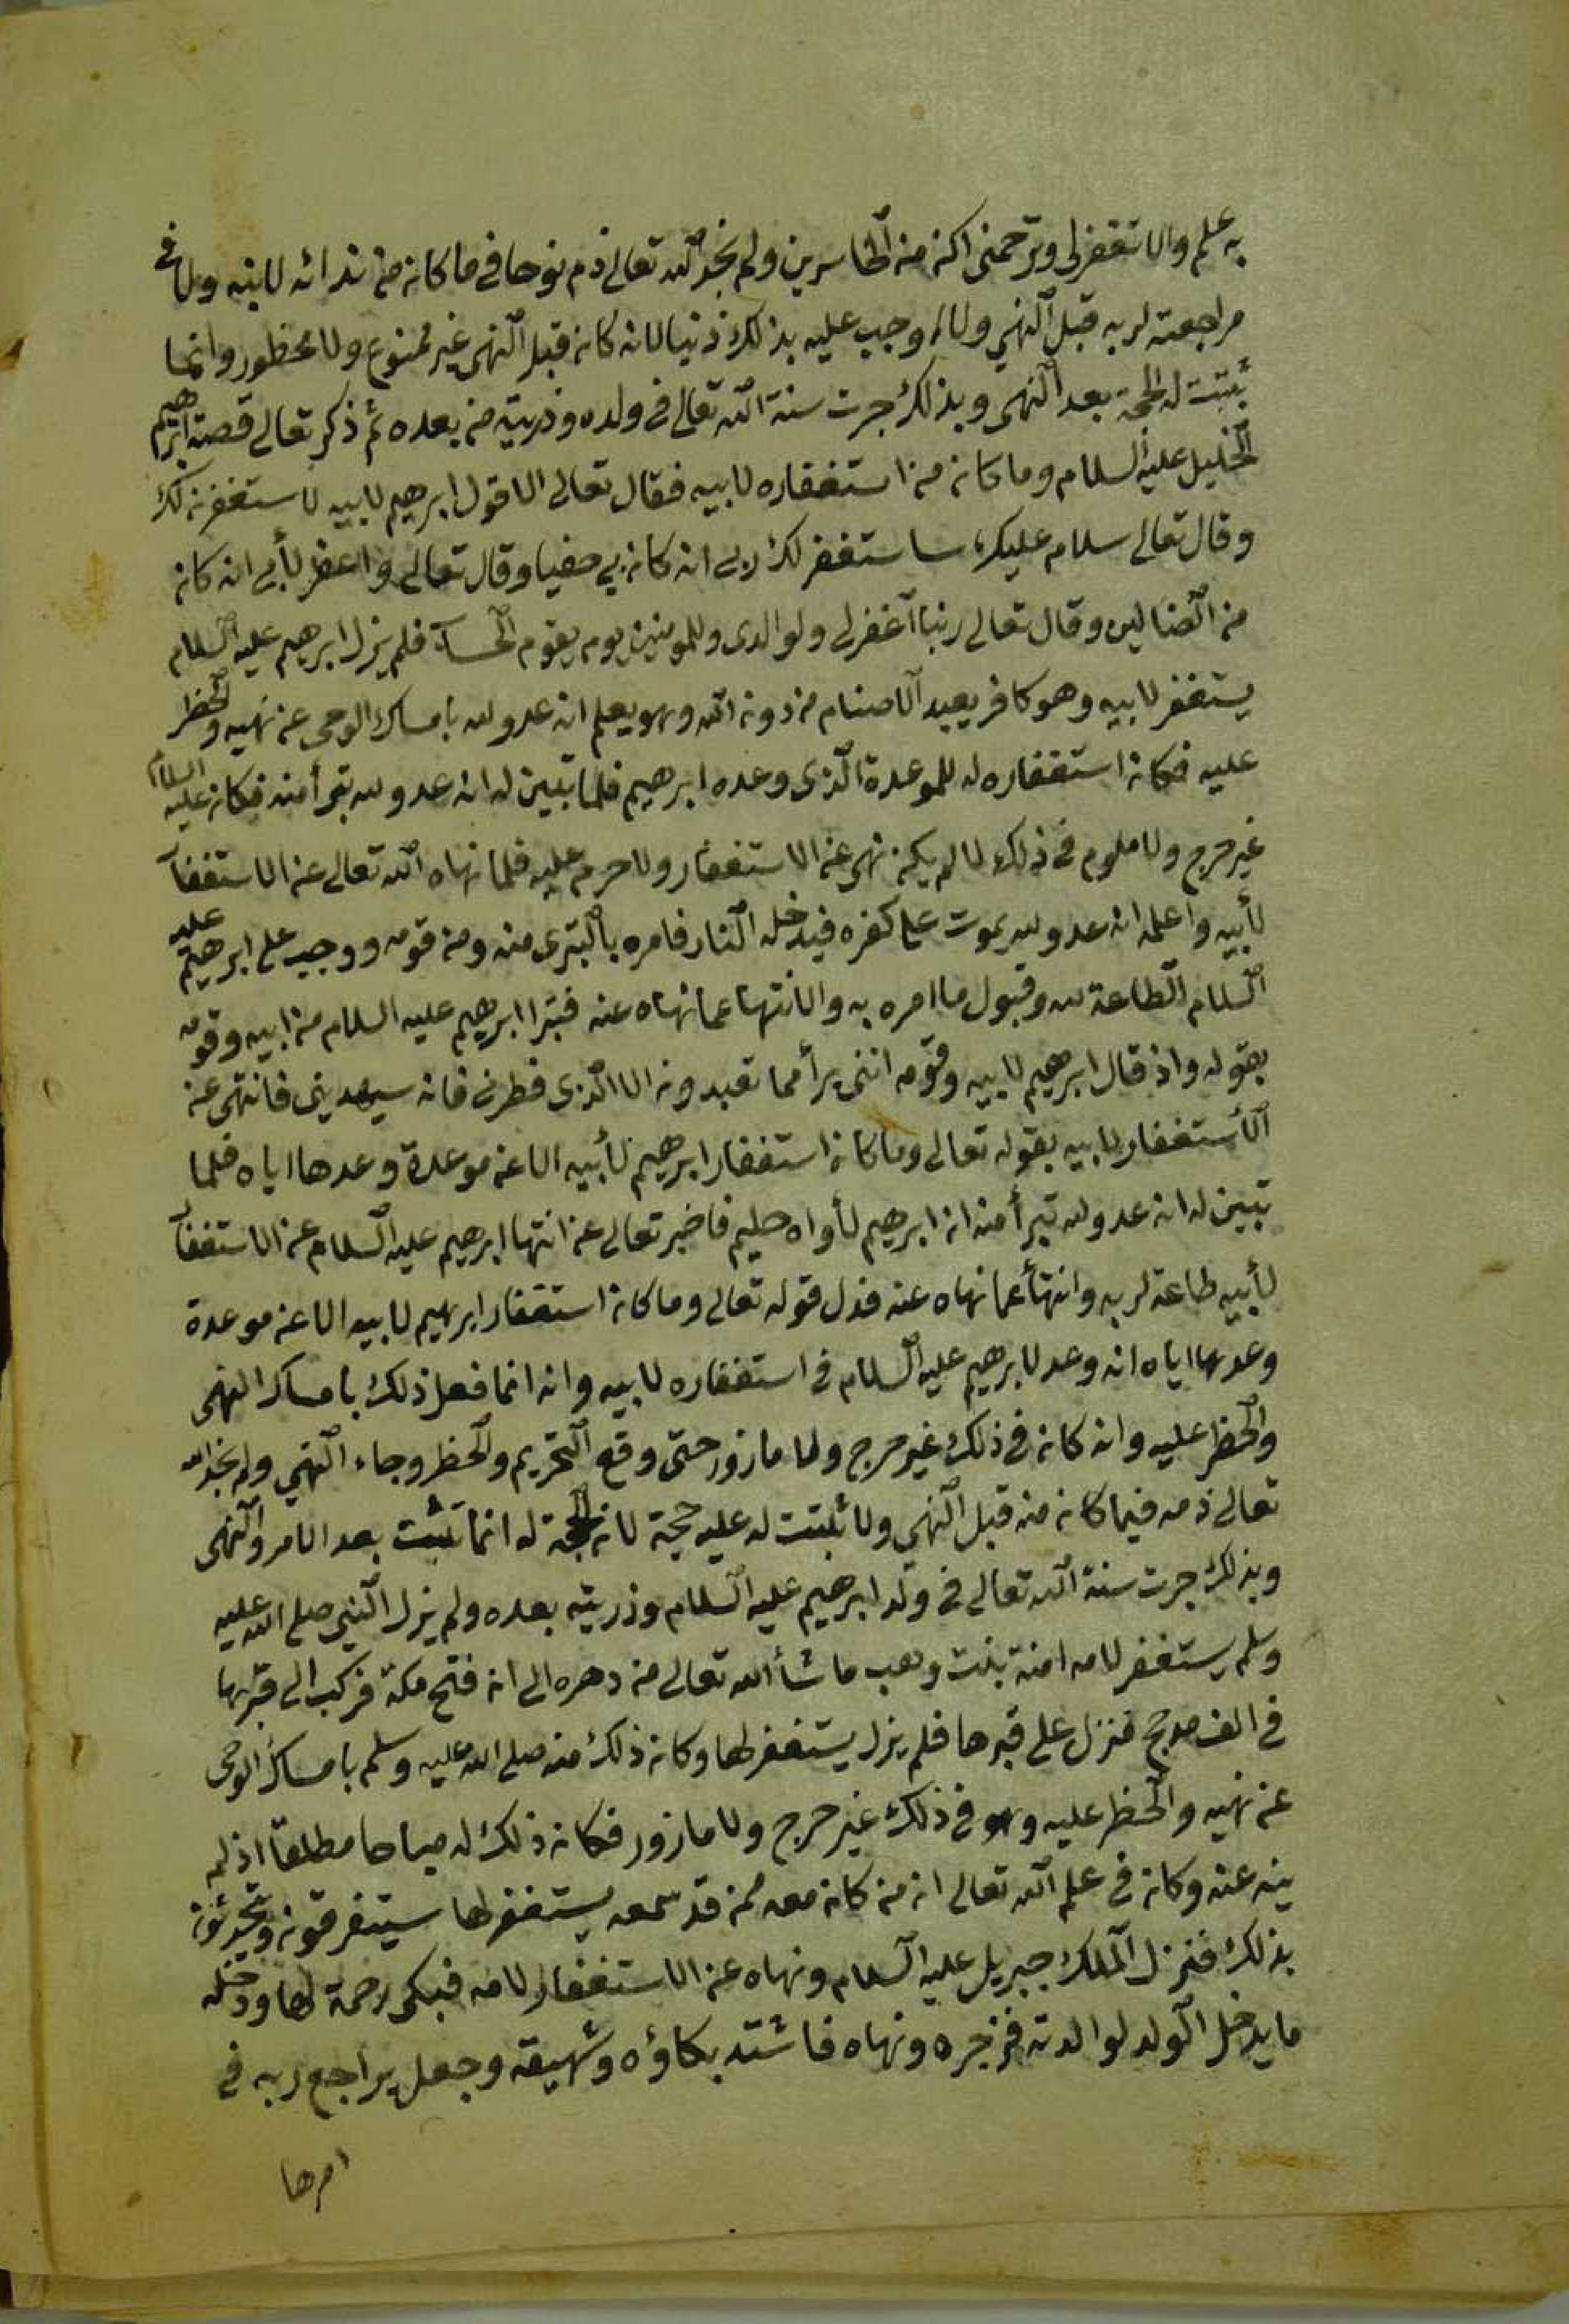 به علم والا تغفرلى وترحمنى اكن من الخاسرين ولم نجد الله تعالى ذم نوحا فى ما كان من ندائه لابنه ولا فى
مراجعته لربه قبل النهي ولا اوجب عليه بذلك ذنبا لانه كان قبل النهى غير ممنوع ولا محظور وانما
ثبتت له الحجة بعد النهى وبذلك جرت سنة الله تعالى فى ولده وذريته من بعده ثم ذكر تعالى قصة ابراهيم
الخليل عليه السلام وما كان من استغفاره لابيه فقال تعالى الا قول ابرهيم لابيه لاستغفرن لك
وقال تعالى سلام عليك ساستغفر لك ربى انه كان بي حفيا وقال تعالى واغفر لأبى انه كان
من الضالين وقال تعالى ربنا اغفرلى ولوالدى وللمومنين يوم يقوم الحساب فلم يزل ابرهيم عليه السلام
يستغفر لابيه وهو كافر يعبد الاصنام من دون الله وهو يعلم انه عدو لله بامساك الوحى عن نهيه والحظر
عليه فكان استغفاره له للموعدة الذى وعده ابرهيم فلما تبين له انه عدو لله تبرأ منه فكان عليه السلام
غير حرج ولا ملوم فى ذلك لما لم يكن نهى عن الاستغفار ولا حرم عليه فلما نهاه الله تعالى عن الاستغفار
لأبيه واعلمه انه عدو لله يموت على كفره فيدخل النار فامره بالتبرى منه ومن قومه ووجب على ابرهيم عليه
السلام الطاعة لله وقبول ما امره به والانتها عما نهاه عنه فتبرا ابرهيم عليه السلام من ابيه وقومه
بقوله واذ قال ابرهيم لابيه وقومه اننى برأ مما تعبدون الا الذى فطرنى فانه سيهدينى فانتهى عن
الأستغفار لابيه بقوله تعالى وما كان استغفار ابرهيم لأبيه الا عن موعدة وعدها اياه فلما
تبين له انه عدو لله تبرأ منه ان ابرهيم لأواه حليم فاخبر تعالى عن انتها ابرهيم عليه السلام عن الاستغفار
لأبيه طاعة لربه وانتهأ عما نهاه عنه فدل قوله تعالى وما كان استغفار ابرهيم لابيه الا عن موعدة
وعدها اياه انه وعد لابرهيم عليه السلام فى استغفاره لابيه وانه انما فعل ذلك بامساك النهى
والحظر عليه وانه كان فى ذلك غير حرج ولا مازور حتى وقع التحريم والحظر وجاء النهي ولم نجد الله
تعالى ذمه فيما كان منه قبل النهي ولا ثبتت له عليه حجة لان الحجة له انما تثبت بعد الامر والنهى
وبذلك جرت سنة الله تعالى فى ولد ابرهيم عليه السلام وذريته بعده ولم يزل النبى صلى الله عليه
وسلم يستغفر لامه امنة بنت وهب ما شأ الله تعالى من دهره الى ان فتح مكة فركب الى قبرها
فى الف مدجج فنزل على قبرها فلم يزل يستغفر لها وكان ذلك منه صلى الله عليه وسلم بامساك الوحى
عن نهيه والحظر عليه وهو فى ذلك غير حرج ولا مازور فكان ذلك له مباحا مطلقا اذ لم
ينه عنه وكان فى علم الله تعالى ان من كان معه ممن قد سمعه يستغفر لها سيتفرقون ويتحدثون
بذلك فنزل الملك جبريل عليه السلام ونهاه عن الاستغفار لامه فبكى رحمة لها ودخله
ما يدخل الولد لوالدته فزجره ونهاه فاشتد بكاؤه وشهيقه وجعل يراجع ربه فى
امرها